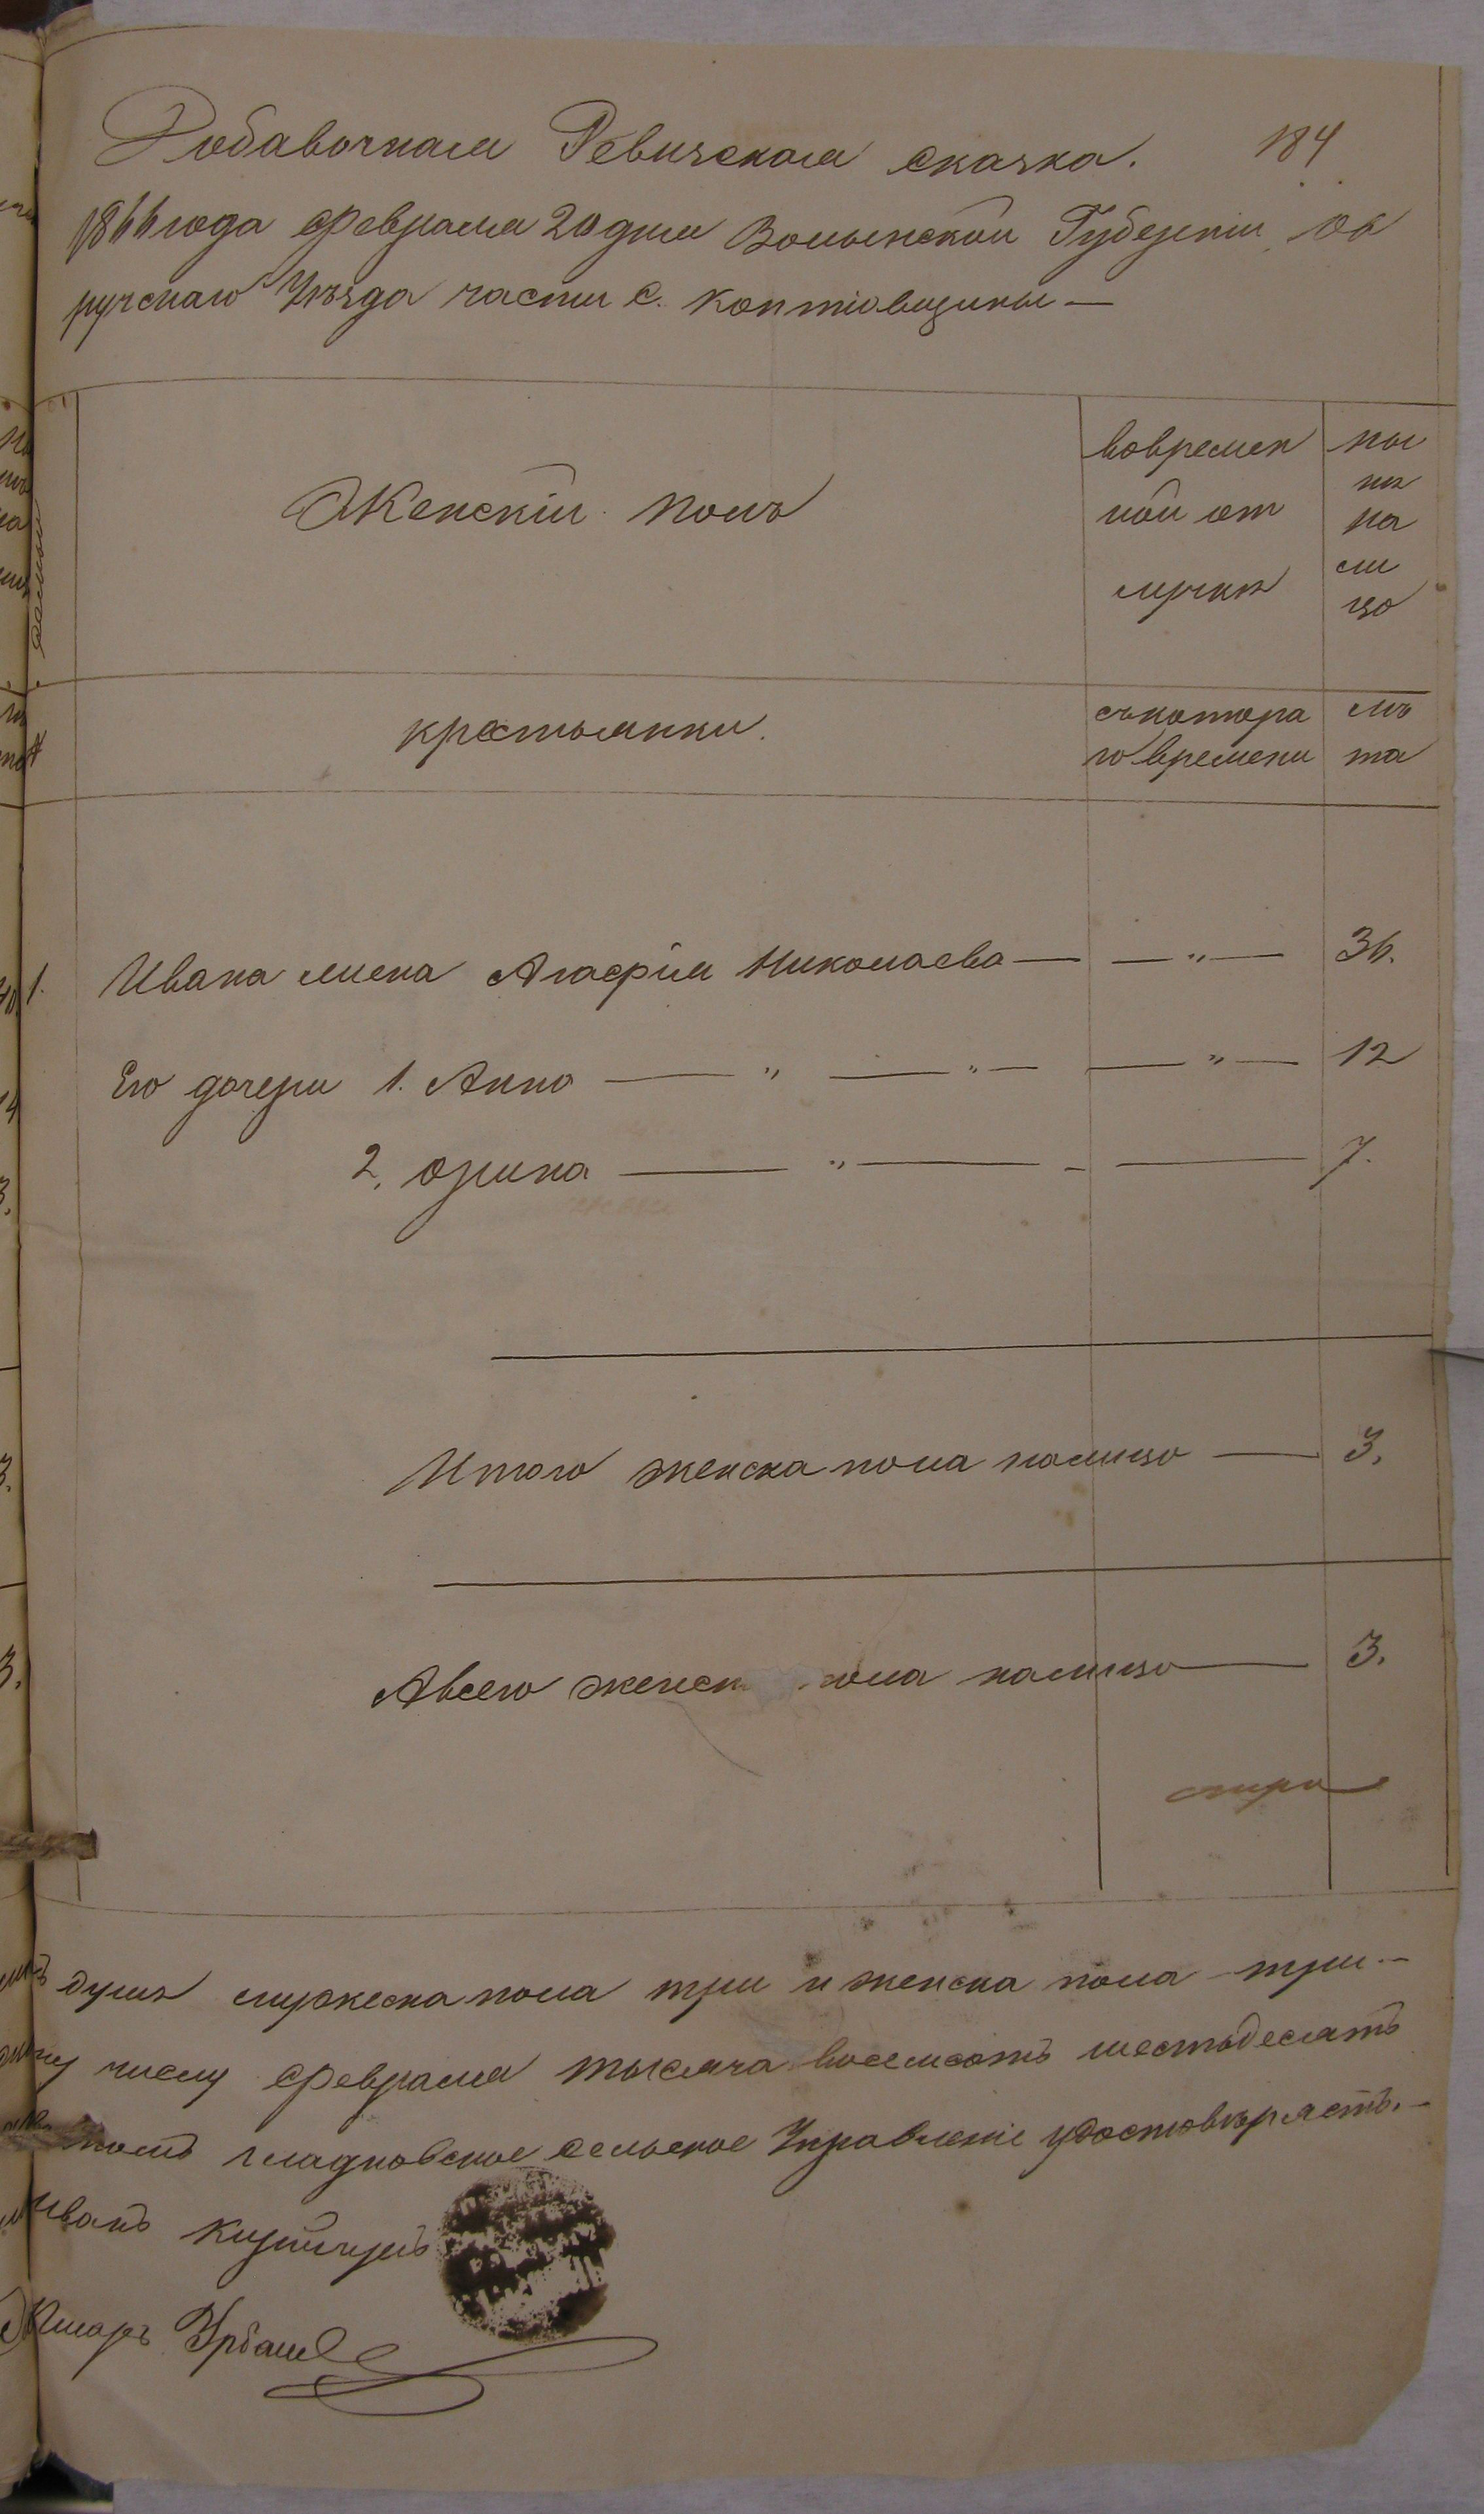 Добавочная Ревизская сказка.
184
1866 года февраля 20 дня Волынской Губерніи Ов
ручскаго Уѣзда части с. Коптіовщины —
Женскій полъ
вовремен
ной от
лучкѣ
ны
нѣ
на
ли
цо
крестьянки.
съкотора
го времени
лѣ
та
1. Ивана жена Агафія Николаева — — „ — 36.
Его дочери 1. Анна — „ — „ — — „ — 12
2. Орина — „ — - — 7.
Итого женска пола налицо — 3.
Авсего женск пола налицо — 3.
три
душъ мужеска пола три и женска пола три. —
числу февраля тысяча восемсотъ шестьдесятъ
гладковское сельское Управленіе удостовѣряетъ. —
Иванъ
Писарь Урбан